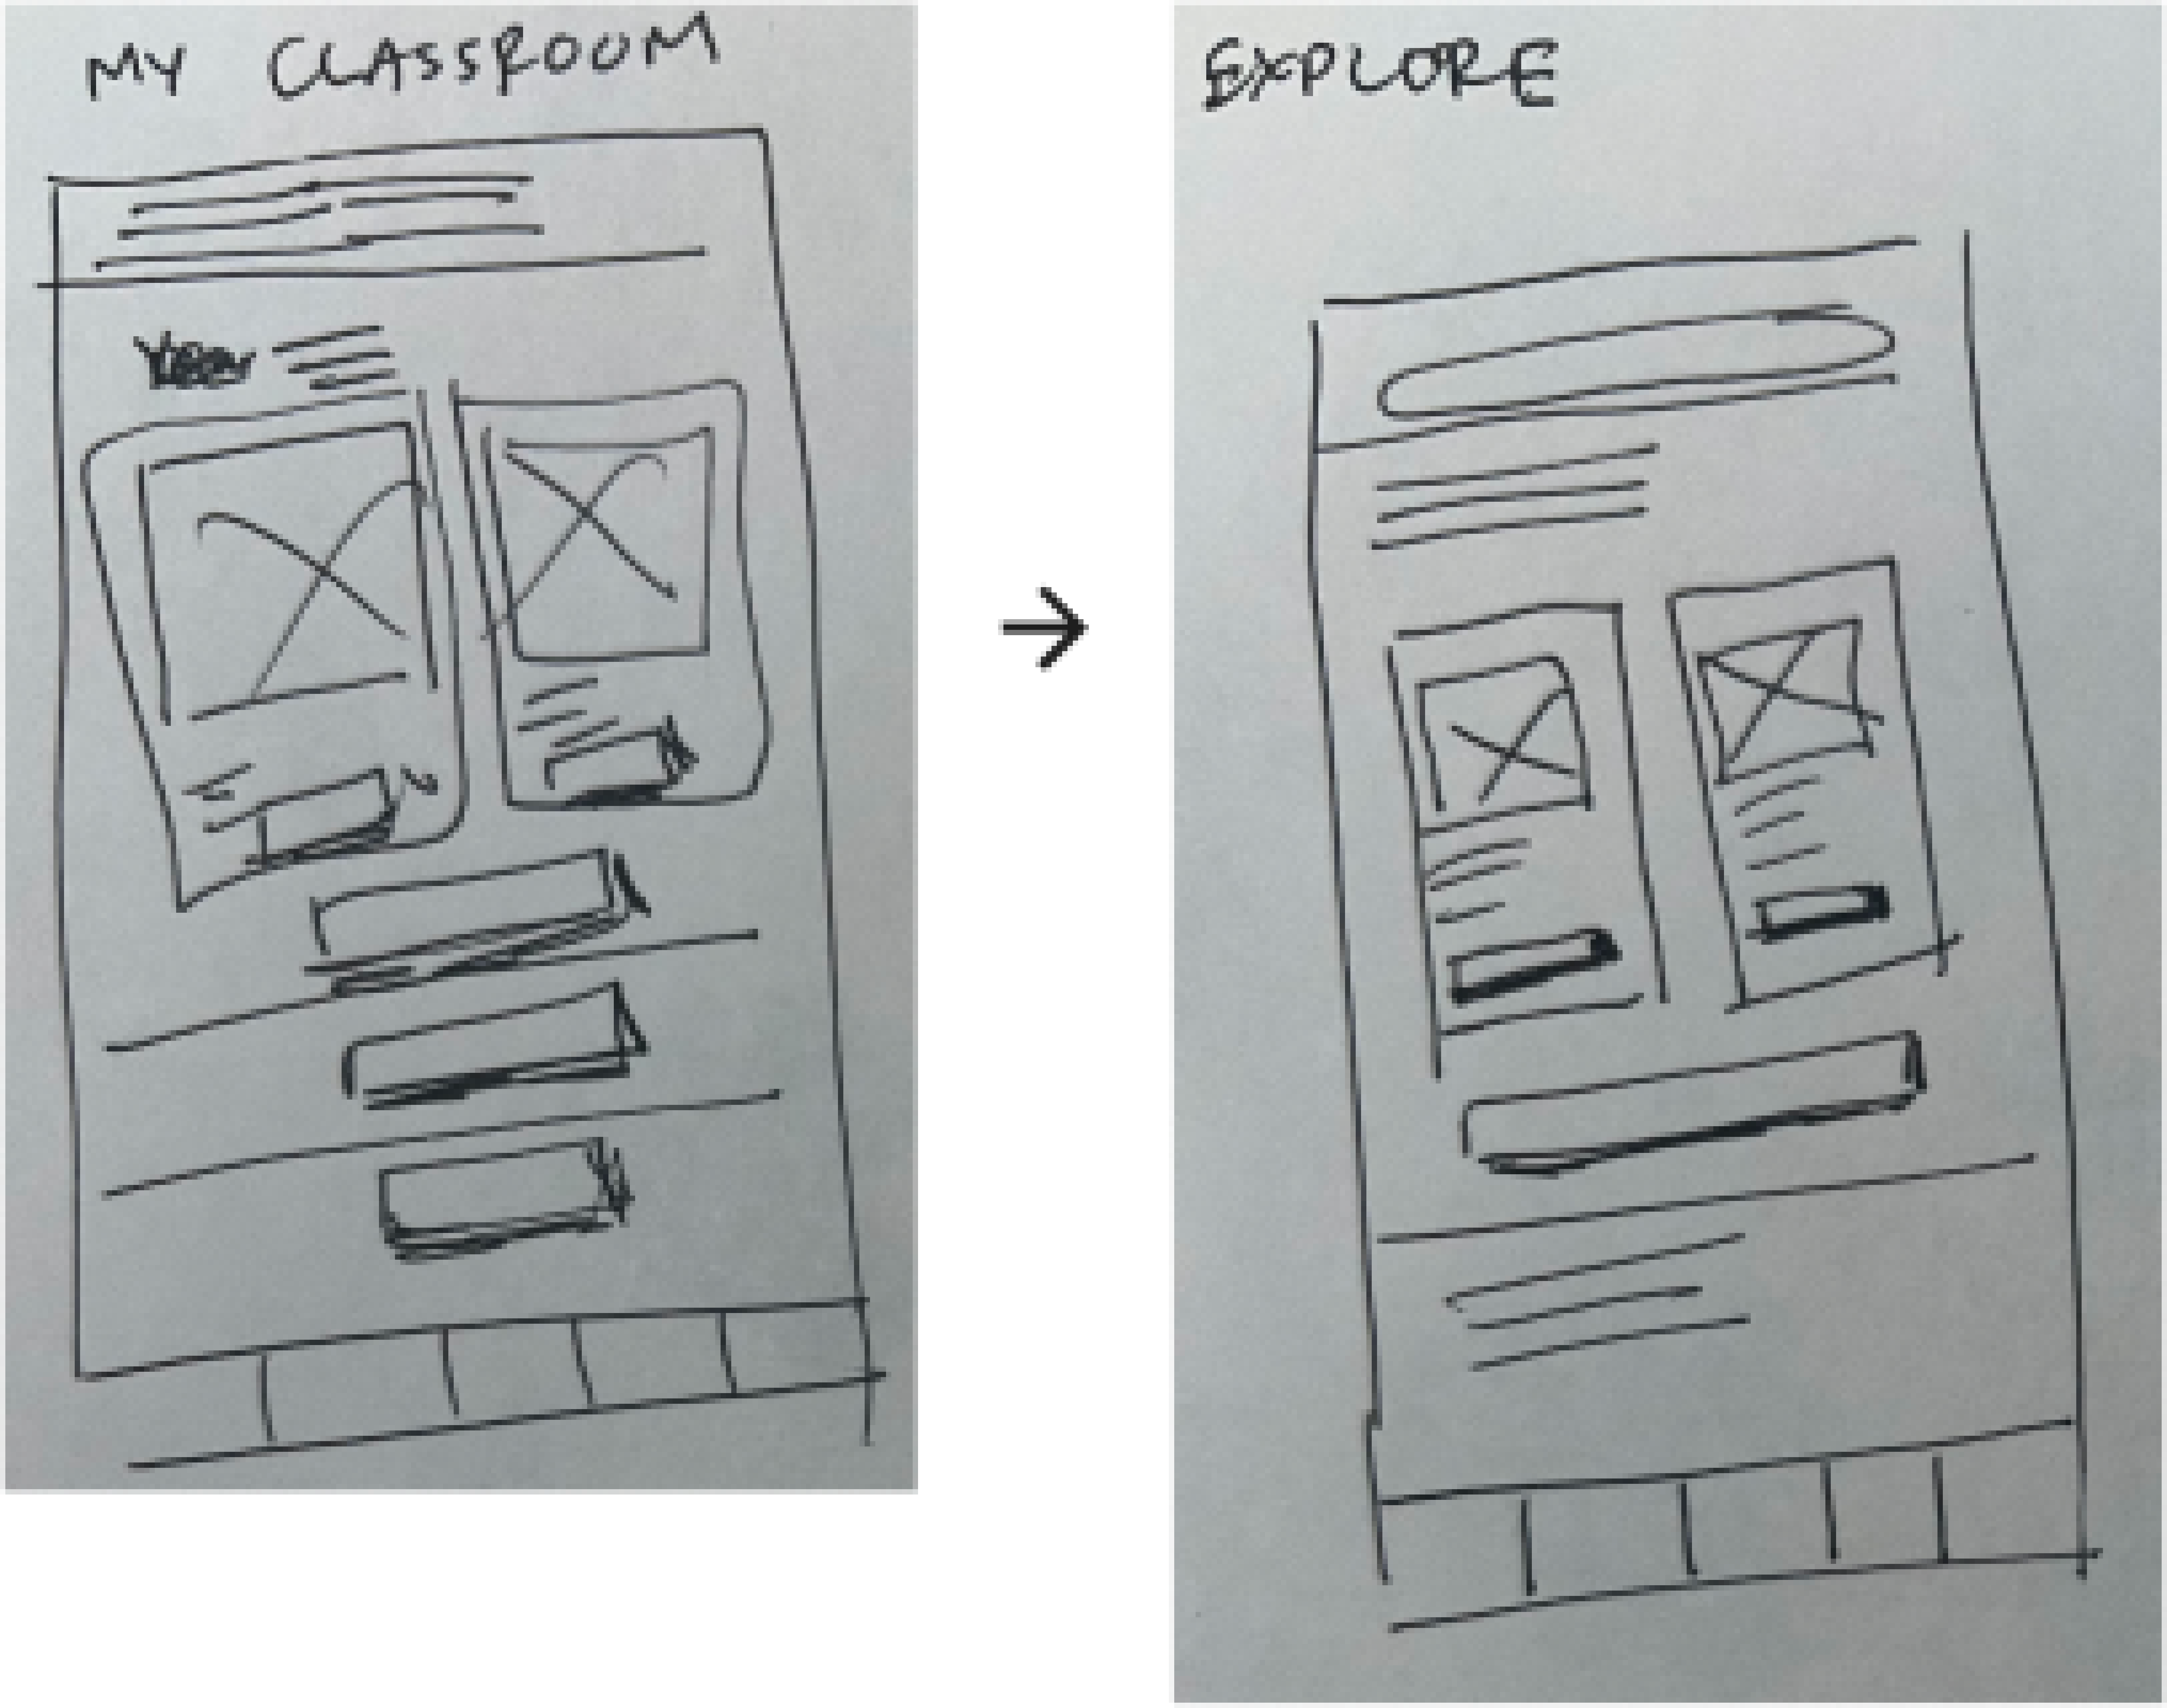 MY CLASSROOM
EXPLORE